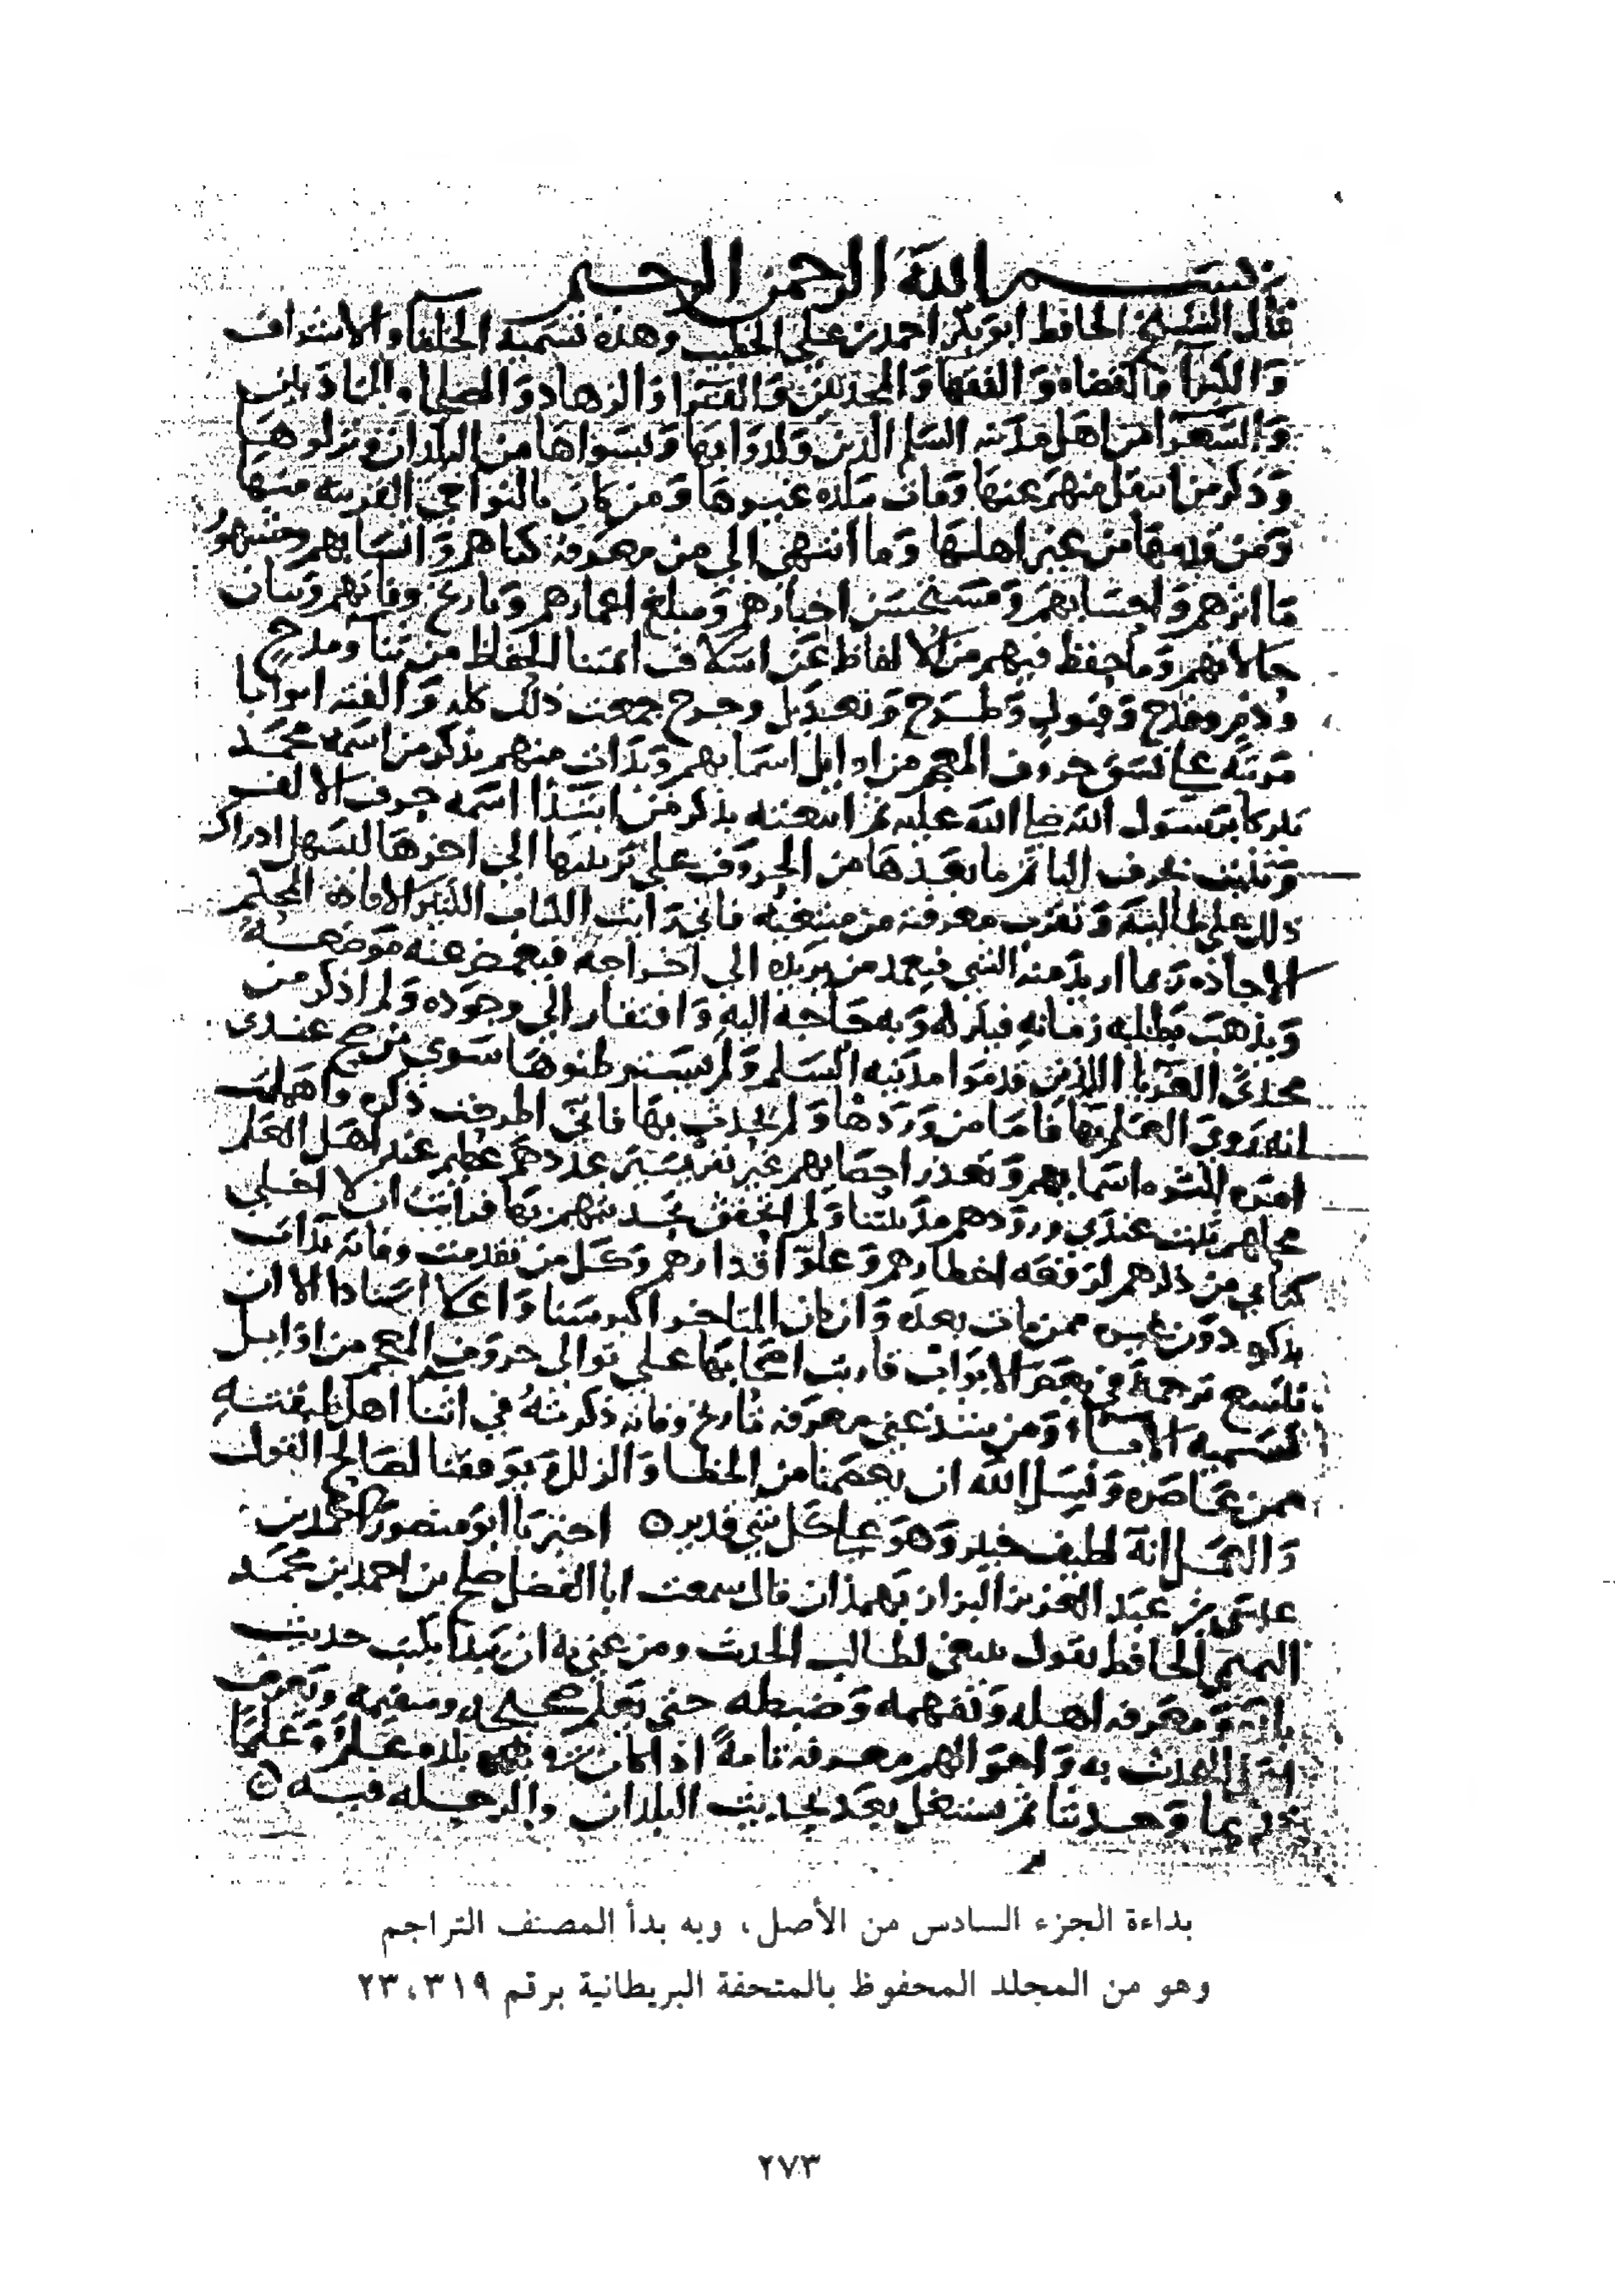 بسم الله الرحمن الرحيم
قال الشيخ الحافظ ابو بكر احمد بن علي الخطيب وهذه تسمية الخلفا والاشراف
والكبرا والقضاه والفقها والمحدثين والقرا والزهاد والصلحا والمتادبين
والشعرا من اهل مدينه السلم الذين ولدوا بها وبسواها من البلدان ونزلوها
وذكر من انتقل منهم عنها ومات ببلده غيرها ومن كان بالنواحي القريبه منها
ومن قدمها من غير اهلها وما انتهى الي من معرفه كناهم وانسابهم ومشهور
ماثرهم واحسابهم ومستحسن اخبارهم ومبلغ اعمارهم وتاريخ وفاتهم وبيان
حالاتهم وما حفظ فيهم من الالفاظ عن اسلاف ايمتنا الحفاظ من ثنا ومدح
وذم وقدح وقبول وطرح وتعديل وجرح جمعت ذلك كله والفته ابوابا
مرتبه على نسق حروف المعجم من اوايل اسمايهم وبدات منهم بذكر من اسمه محمد
تبركا برسول الله صلى الله عليه ثم اتبعته بذكر من ابتدا اسمه حرف الالف
وثنيت بحرف البا ثم ما بعدها من الحروف على ترتيبها الى اخرها ليسهل ادراك
ذلك على طالبه وتقرب معرفته من مبتغيه فاني رايت الكتاب الكثير الافاده المحكم
الاجاده ربما اريد منه الشي فيعمد من يريده الى اخراجه فيغمض عنه موضعه
ويذهب بطلبه زمانه فيتركه وبه حاجه اليه وافتقار الى وجوده ولم اذكر من
محدثي الغربا الذين قدموا مدينه السلم ولم يستوطنوها سوى من صح عندي
انه روى العلم بها فاما من وردها ولم يحدث بها فاني اطرحت ذكره واهملت
امره لكثره اسمايهم وتعذر احصايهم غير نفر يسير عددهم عظيم عند اهل العلم
محلهم ثبت عندي ورودهم مدينتنا ولم اتحقق تحديثهم بها فرايت ان لا اخلي
كتابي من ذكرهم لرفعه اخطارهم وعلو اقدارهم وكل من تقدمت وفاته بدات
بذكره دون غيره ممن مات بعده وان كان المتاخر اكبر سنا واعلا اسنادا الا ان
تتسع ترجمة في بعض الابواب فارتب اصحابها على توالي حروف المعجم من اوايل
تسميه الابا ومن شذ عني معرفه تاريخ وفاته ذكرته في اثنا اهل طبقته
ممن عاصره ونسل الله ان يعصمنا من الخطا والزلل ويوفقنا لصالح القول
والعمل انه لطيف خبير وهو على كل شي قدير ٥ اخبرنا ابو منصور محمد بن
عيسى بن عبد العزيز البزاز بهمذان قال سمعت ابا الفضل صلح بن احمد بن محمد
التميمي الحافظ يقول ينبغي لطالب الحديث ومن عني به ان يبدا بكتب حديث
بلده ومعرفه اهله وتفهمه وضبطه حتى يعلم صحيحه وسقيمه ويعرف
اهل التحديث به واحوالهم معرفه تامة اذا كان في بلده علم وعلما
قديما وحديثا ثم يشتغل بعد بحديث البلدان والرحله فيه ٥
بداءة الجزء السادس من الأصل، وبه بدأ المصنف التراجم
وهو من المجلد المحفوظ بالمتحفة البريطانية برقم ٢٣،٣١٩
٢٧٣